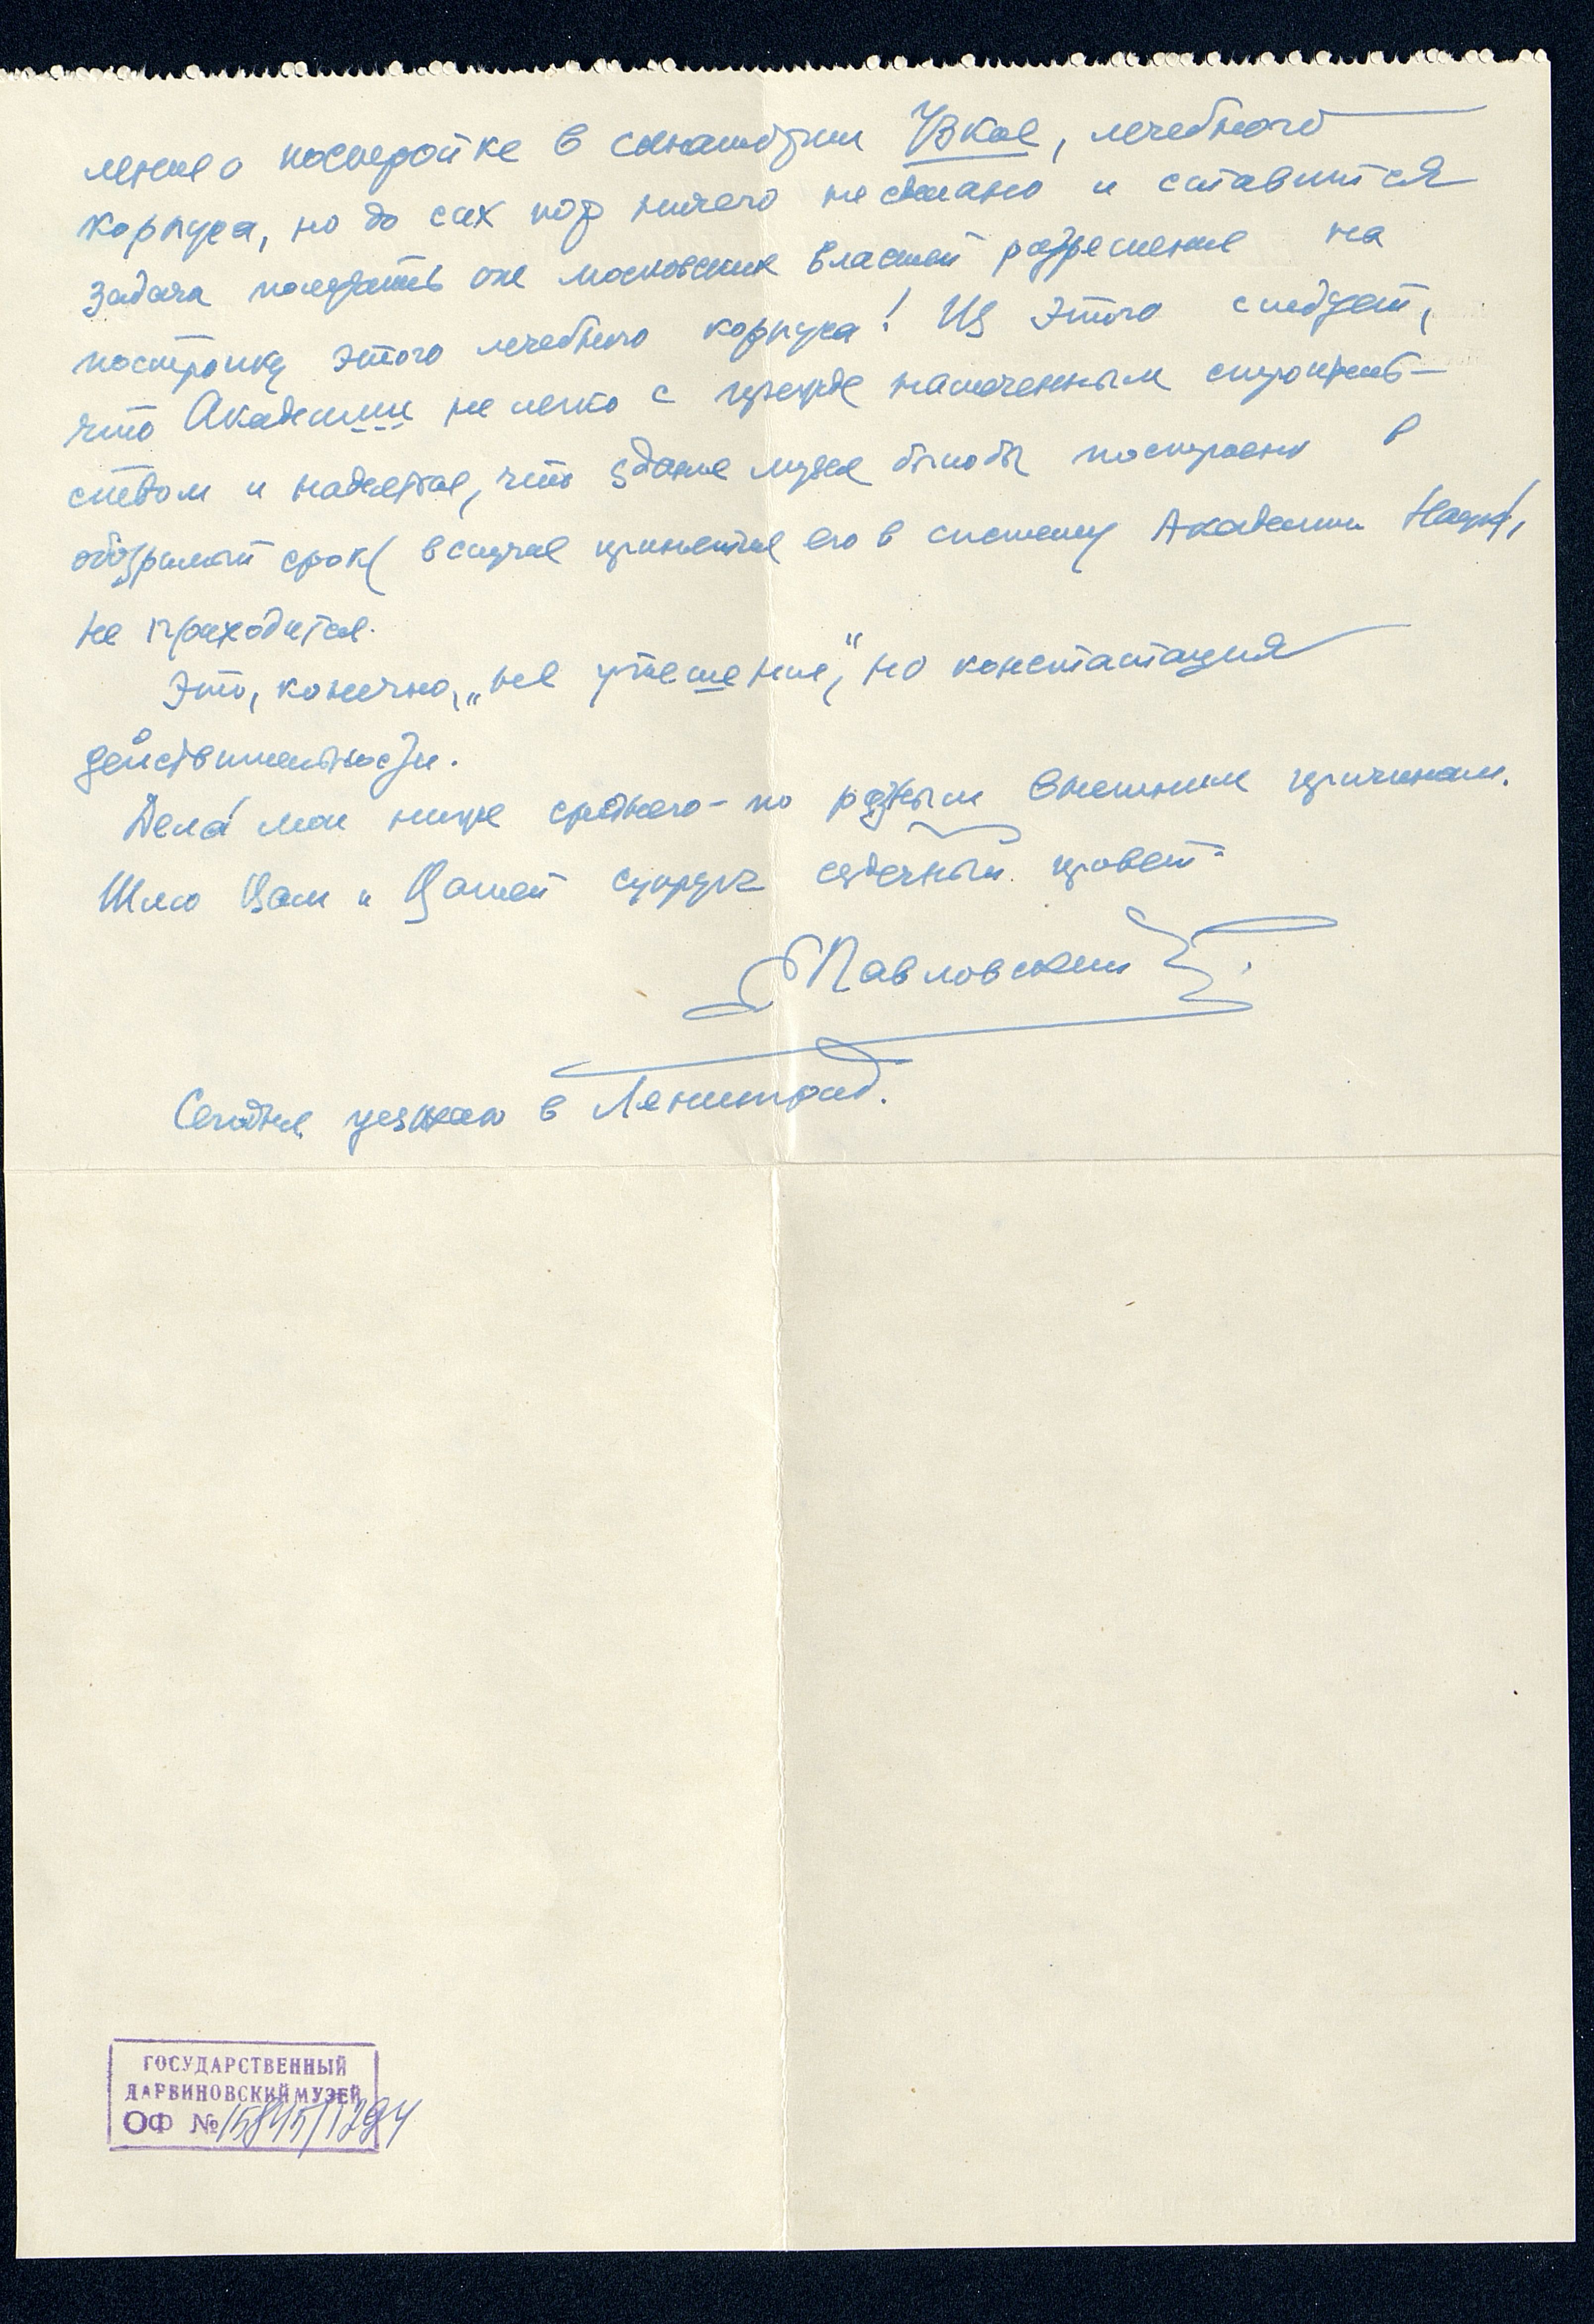 ление о постройке в санатории Узкое, лечебного
корпуса, но до сих пор ничего не сделано и ставится
задача получить от московских властей разрешение на
постройку этого лечебного корпуса! Из этого следует,
что Академии не легко с прежде намеченным строитель-
ством и надеяться, что здание музея было бы построено в
обозримый срок (в случае принятия его в систему Академии Наук),
не приходится.
Это, конечно, „не утешение", но констатация
действительности.
Дела́ мои ниже среднего - по разным внешним причинам.
Шлю Вам и Вашей супруге сердечный привет.
Павловский
Сегодня уезжаю в Ленинград.
ГОСУДАРСТВЕННЫЙ
ДАРВИНОВСКИЙ МУЗЕЙ
ОФ № 15845/1294